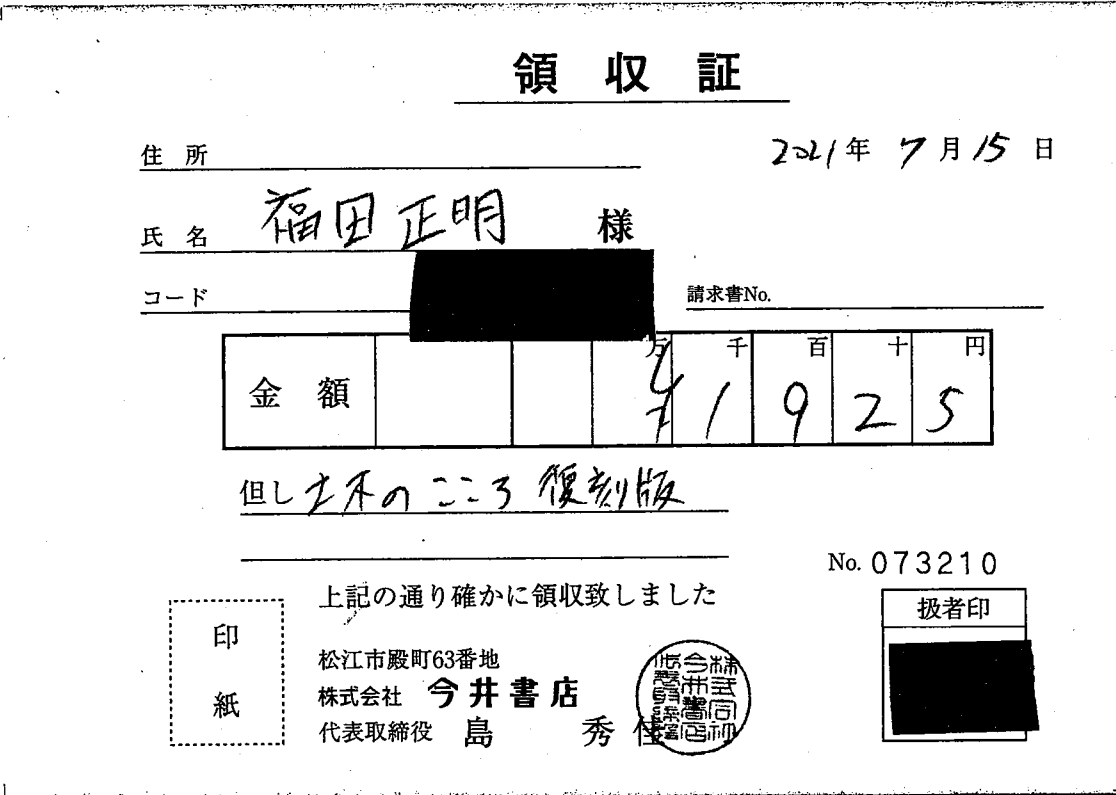 領収証
住所
2021年 7月15日
氏名 福田正明 様
コード
請求書No.
金額 万 千 百 十 円
¥1925
但し 土木のこころ 復刻版
No. 073210
上記の通り確かに領収致しました
扱者印
印紙
松江市殿町63番地
株式会社 今井書店
代表取締役 島 秀佳